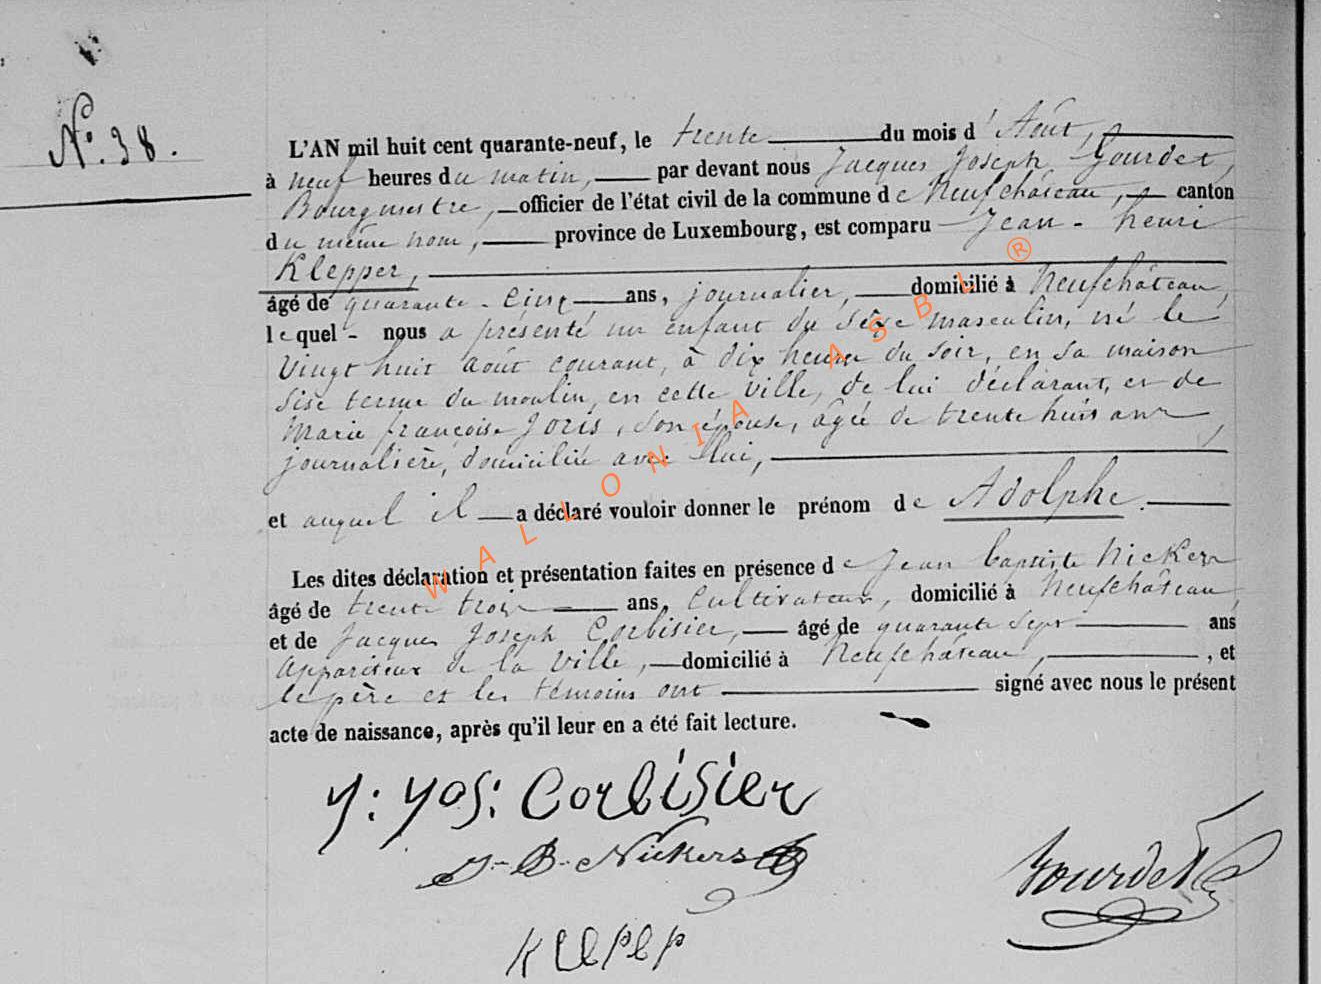 N°. 38.
L'AN mil huit cent quarante-neuf, le trente du mois d'Août,
à neuf heures du matin, par devant nous Jacques Joseph Gourdet,
Bourgmestre, officier de l'état civil de la commune de Neufchâteau, canton
du même nom, province de Luxembourg, est comparu Jean-henri
Klepper,
âgé de quarante-cinq ans, journalier, domicilié à Neufchâteau,
lequel - nous a présenté un enfant du sexe masculin, né le
Vingt huit août courant, à dix heures du soir, en sa maison
sise terme du moulin, en cette ville, de lui déclarant, et de
Marie françoise Joris, son épouse, âgée de trente huit ans,
journalière, domiciliée avec lui,
et auquel il a déclaré vouloir donner le prénom de Adolphe.
Les dites déclaration et présentation faites en présence de Jean baptiste Nickers
âgé de trente trois ans, Cultivateur, domicilié à Neufchâteau,
et de Jacques Joseph Corbisier, âgé de quarante sept ans
appariteur de la ville, domicilié à Neufchâteau, , et
le père et les témoins ont signé avec nous le présent
acte de naissance, après qu'il leur en a été fait lecture.
J: Jos: Corbisier
J-B-Nickers
Gourdet
Klepep
WALLONIA ASBL ®